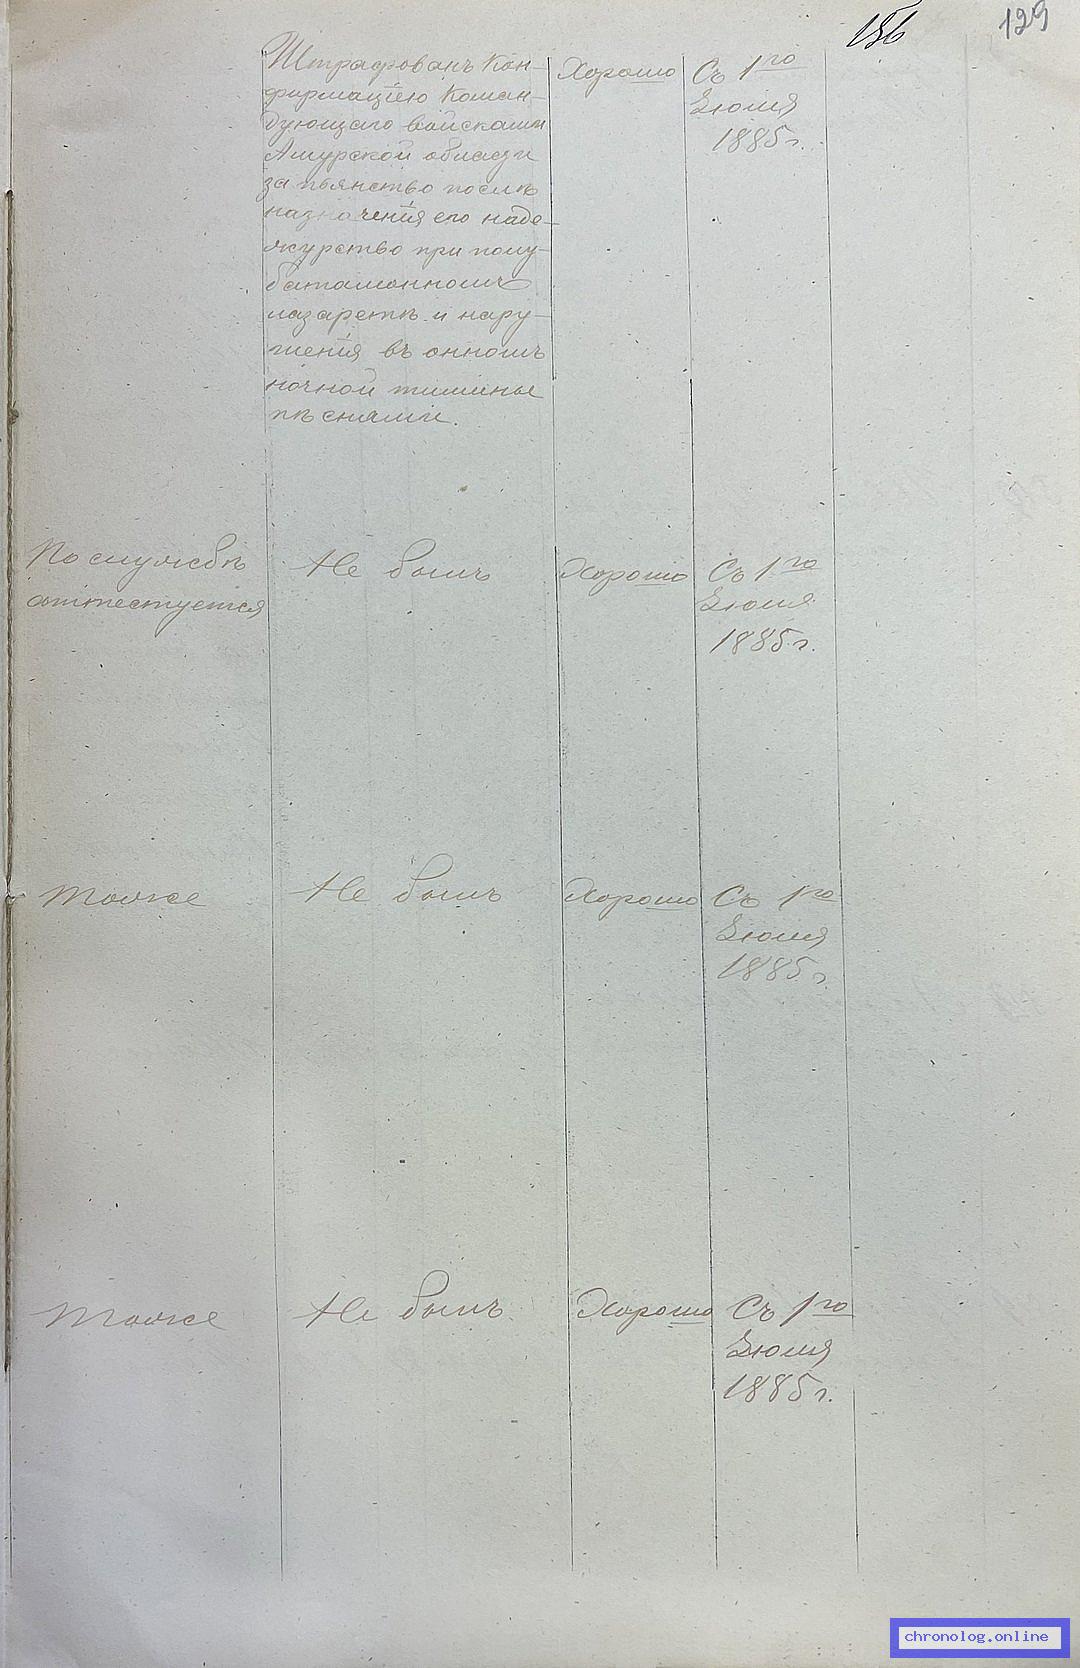 156
129
Штрафованъ Кон-
фирмаціею Коман-
дующаго войсками
Амурской области
за пьянство послѣ
назначенія его на де-
журство при полу-
баталіонномъ
лазаретѣ и нару-
шенія въ ономъ
ночной тишины
пѣснями.
Хорошо
Съ 1го
Іюля
1885 г.
По службѣ
аттестуется
Не былъ
Хорошо
Съ 1го
Іюля
1885 г.
Тоже
Не былъ
Хорошо
Съ 1го
Іюля
1885 г.
Тоже
Не былъ
Хорошо
Съ 1го
Іюля
1885 г.
chronolog.online